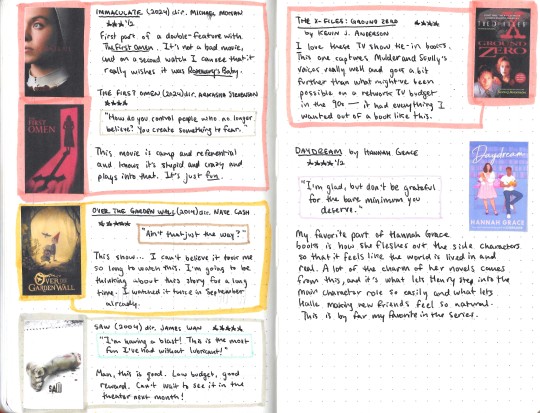 IMMACULATE (2024) dir. MICHAEL MOHAN
★★★½
First part of a double-feature with
The First Omen. It's not a bad movie,
and on a second watch I can see that it
really wishes it was Rosemary's Baby.
THE FIRST OMEN (2024) dir. ARKASHA STEVENSON
★★★★
"How do you control people who no longer
believe? You create something to fear."
This movie is camp and referential
and knows it's stupid and crazy and
plays into that. It's just fun.
THE FIRST
OMEN
OVER THE GARDEN WALL (2014) dir. NATE CASH
★★★★★
"Ain't that just the way?"
This show... I can't believe it took me
so long to watch this. I'm going to be
thinking about this story for a long
time. I watched it twice in September
already.
OVER THE
GARDEN WALL
SAW (2004) dir. JAMES WAN ★★★★★
"I'm having a blast! This is the most
fun I've had without lubricant!"
Man, this is good. Low budget, good
reward. Can't wait to see it in the
theater next month!
SAW
THE X-FILES: GROUND ZERO ★★★★★
by KEVIN J. ANDERSON
I love these TV show tie-in books.
This one captures Mulder and Scully's
voices really well and goes a bit
further than what might've been
possible on a network TV budget
in the 90s — it had everything I
wanted out of a book like this.
GROUND
ZERO
DAYDREAM by HANNAH GRACE
★★★★½
"I'm glad, but don't be grateful
for the bare minimum you
deserve."
Daydream
HANNAH GRACE
My favorite part of Hannah Grace
books is how she fleshes out the side characters
so that it feels like the world is lived in and
real. A lot of the charm of her novels comes
from this, and it's what lets Henry step into the
main character role so easily and what lets
Halle making new friends feel so natural.
This is by far my favorite in the series.